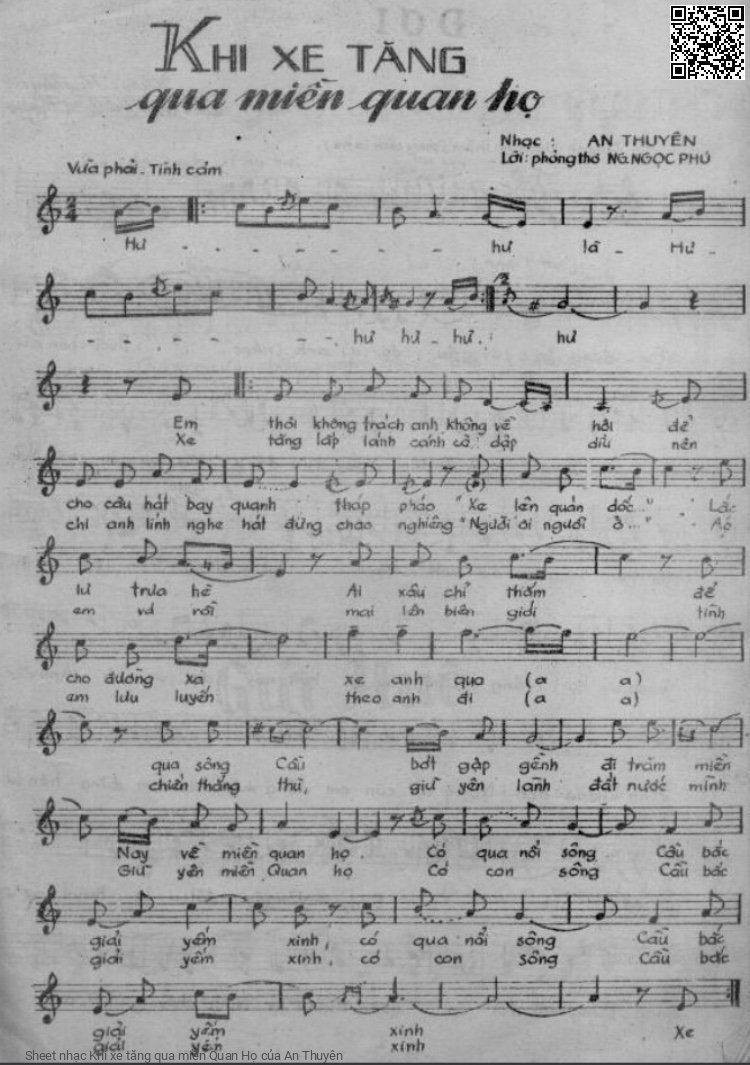 KHI XE TĂNG
qua miền quan họ
Nhạc : AN THUYÊN
Lời : phỏng thơ NG.NGỌC PHÚ
Vừa phải - Tình cảm
2 4
Hư - - - - - - hư là - Hư -
- - - - - hư hư - hư . : hư
2
Em thôi không trách anh không về hội để
Xe tăng lấp lánh cánh cò dập dìu nên
cho câu hát bay quanh tháp pháo "Xe lên quán dốc..." . Lắc
chi anh lính nghe hát đừng chao nghiêng "Người ơi người ở..." . Áo
lư trưa hè Ai xâu chỉ thắm để
em vá rồi mai lên biên giới tình
cho đường xa xe anh qua (a a)
em lưu luyến theo anh đi (a a)
qua sông Cầu bớt gập gềnh đi trăm miền
chiến thắng thù, giữ yên lành đất nước mình
Nay về miền quan họ . Có qua nổi sông Cầu bắc
Giữ yên miền Quan họ Có con sông Cầu bắc
giải yếm xinh, có qua nổi sông Cầu bắc
giải yếm xinh, có con sông Cầu bắc
giải yếm xinh Xe
giải yếm xinh
Sheet nhạc Khi xe tăng qua miền Quan Họ của An Thuyên